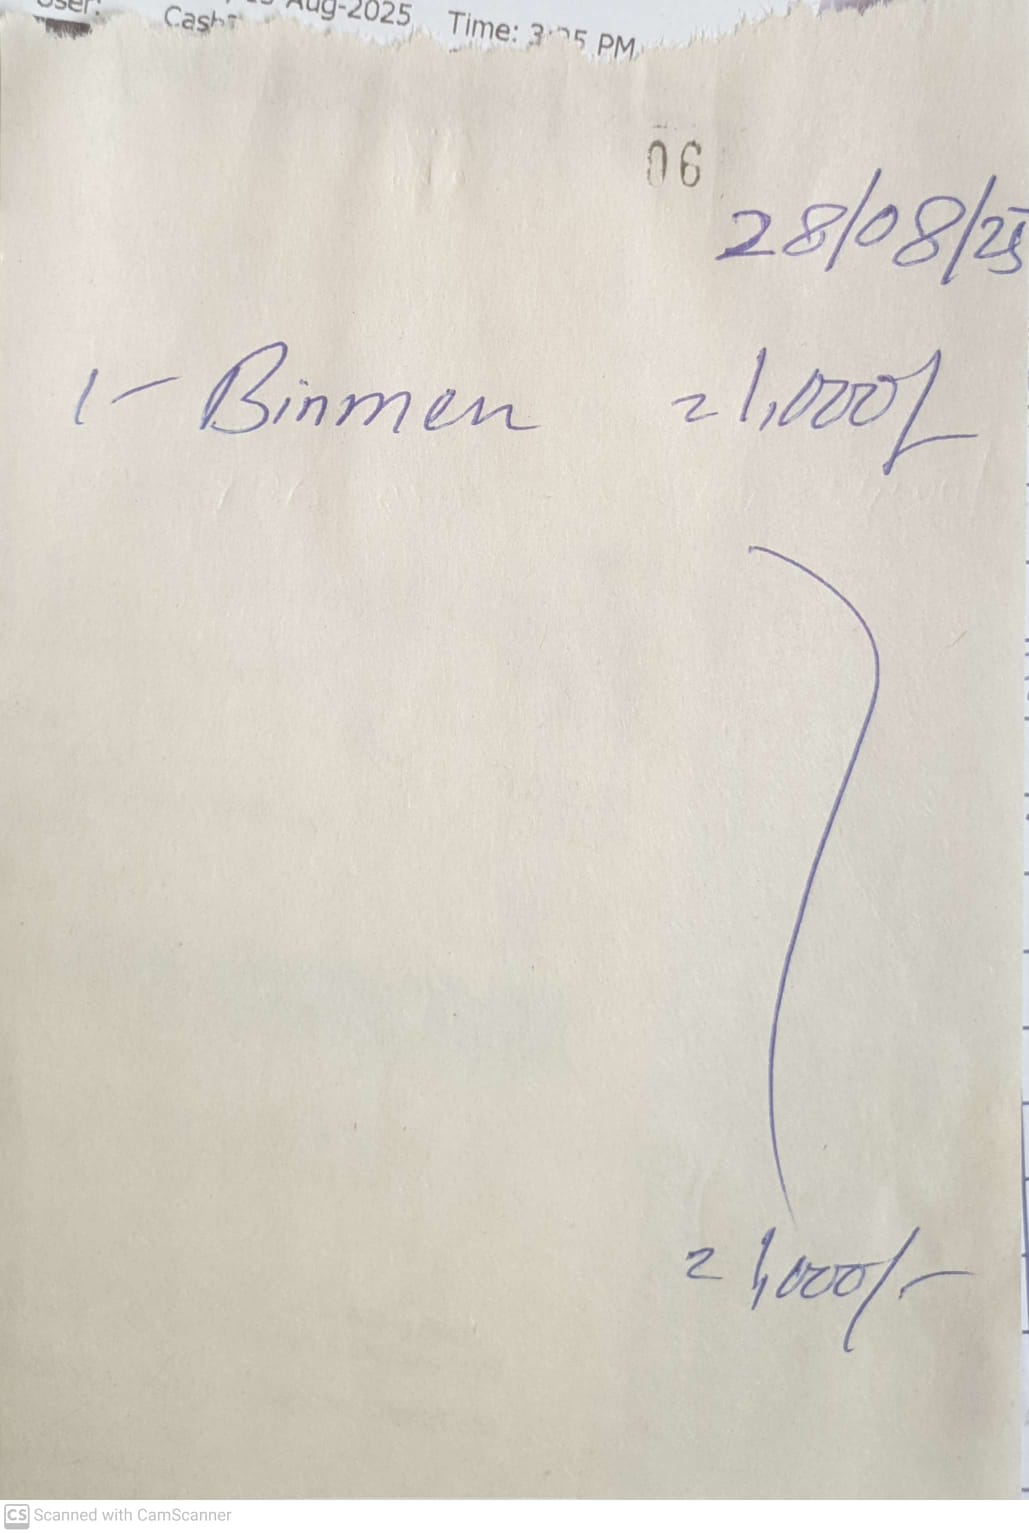 Aug-2025 Time: PM
06
28/08/25
1- Binmen = 1,000/-
= 1,000/-
CS Scanned with CamScanner